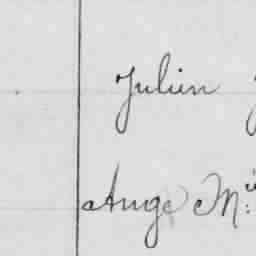 Julien
Ange M.